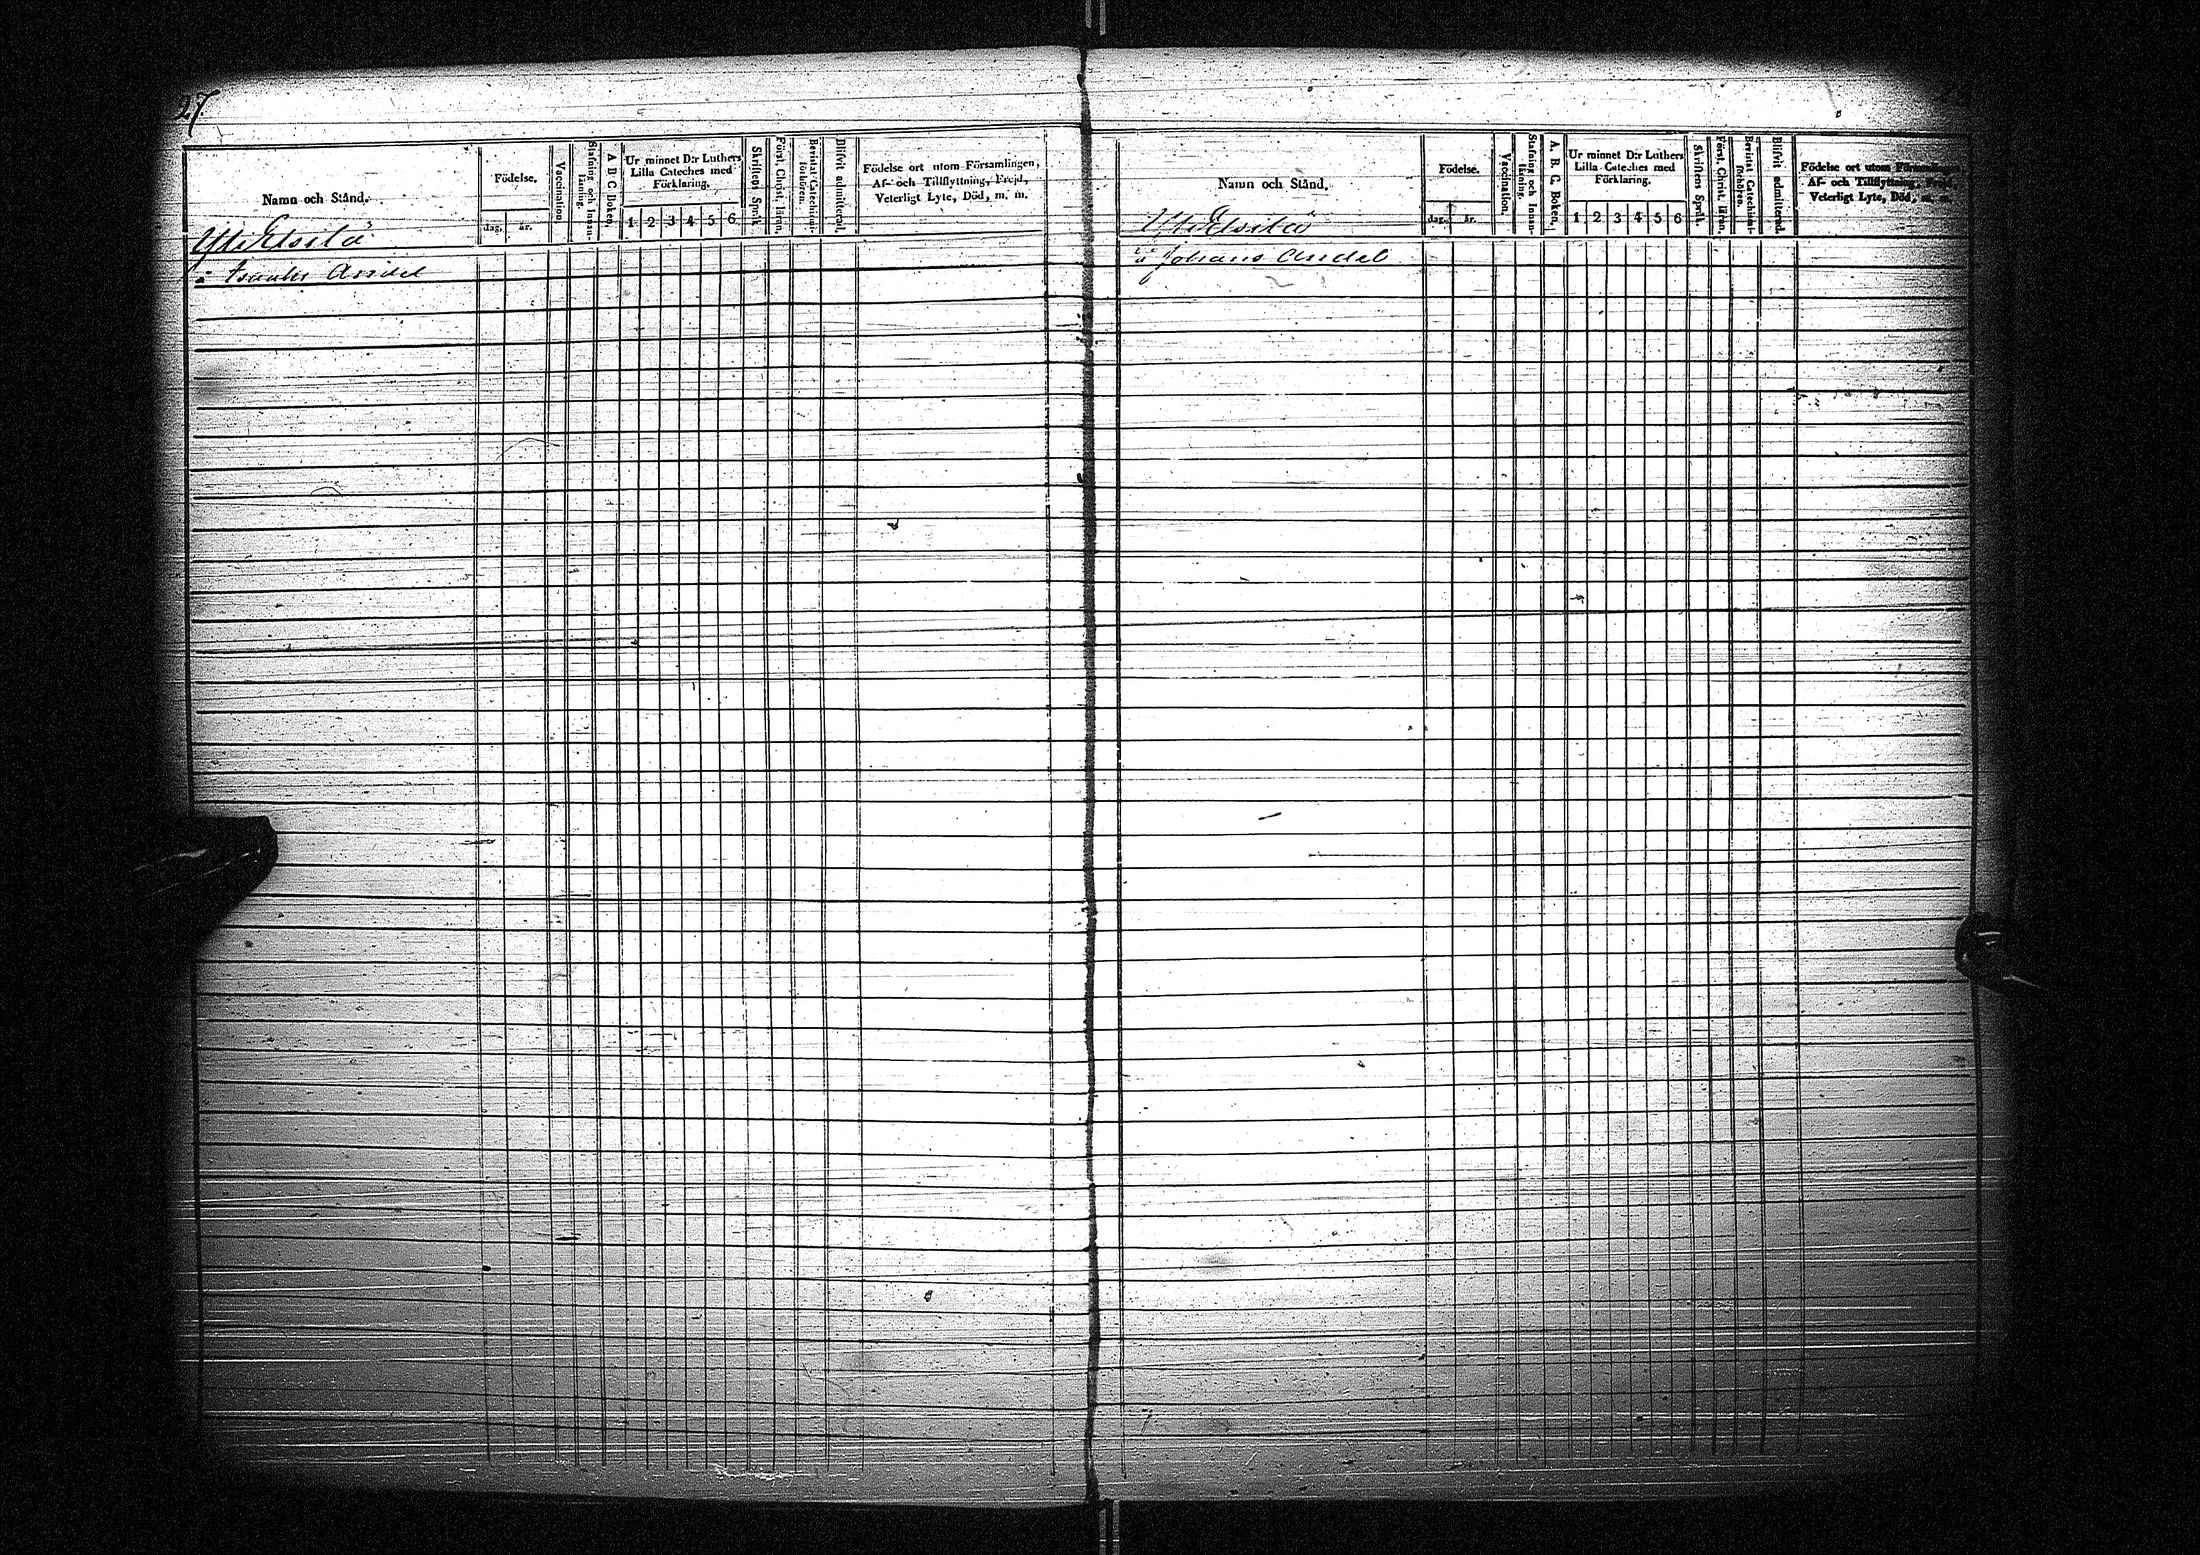 27.
Namn och Stånd.
Födelse.
dag.
år.
Vaccination
Stafning och Innan-
läsning.
A B C Boken.
Ur minnet D:r Luthers
Lilla Cateches med
Förklaring.
1 2 3 4 5 6
Skriftens Språk.
Först. Christ. läran.
Bevistat Catechismi-
förhören.
Blifvit admitterad.
Födelse ort utom Församlingen,
Af- och Tillflyttning, Frejd,
Veterligt Lyte, Död, m. m.
Andel
Namn och Stånd.
Födelse.
dag.
år.
Vaccination.
Stafning och Innan-
läsning.
A. B. C. Boken.
Ur minnet D:r Luthers
Lilla Cateches med
Förklaring.
1 2 3 4 5 6
Skriftens Språk.
Först. Christ. läran.
Bevistat Catechismi-
förhören.
Blifvit admitterad.
Födelse ort utom
Af- och Tillflyttning,
Veterligt Lyte, Död, m. m.
Johans Andel